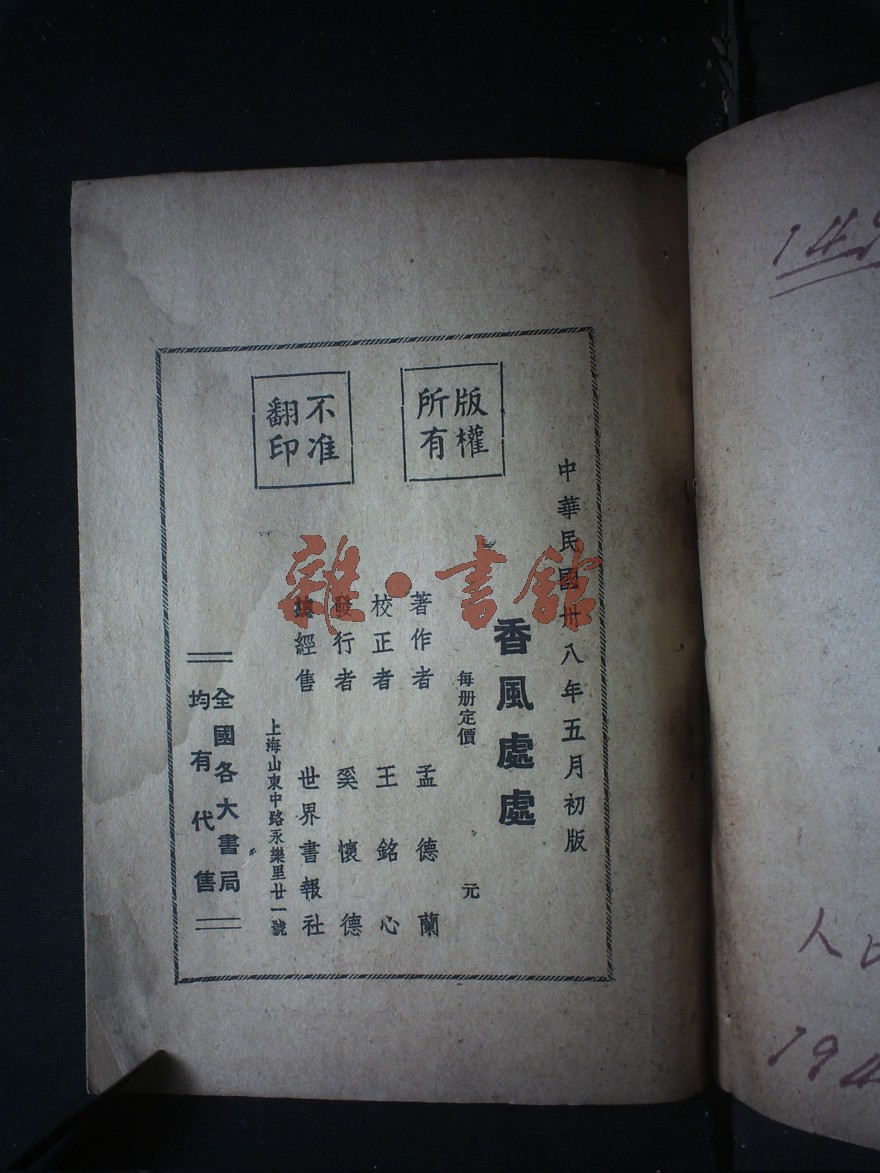 中華民國卅八年五月初版
香風處處
每册定價 元
版權
所有
著作者 孟德蘭
校正者 王銘心
發行者 奚懷德
總經售 世界書報社
上海山東中路永樂里廿一號
不准
翻印
全國各大書局
均有代售
雜·書館
人
194